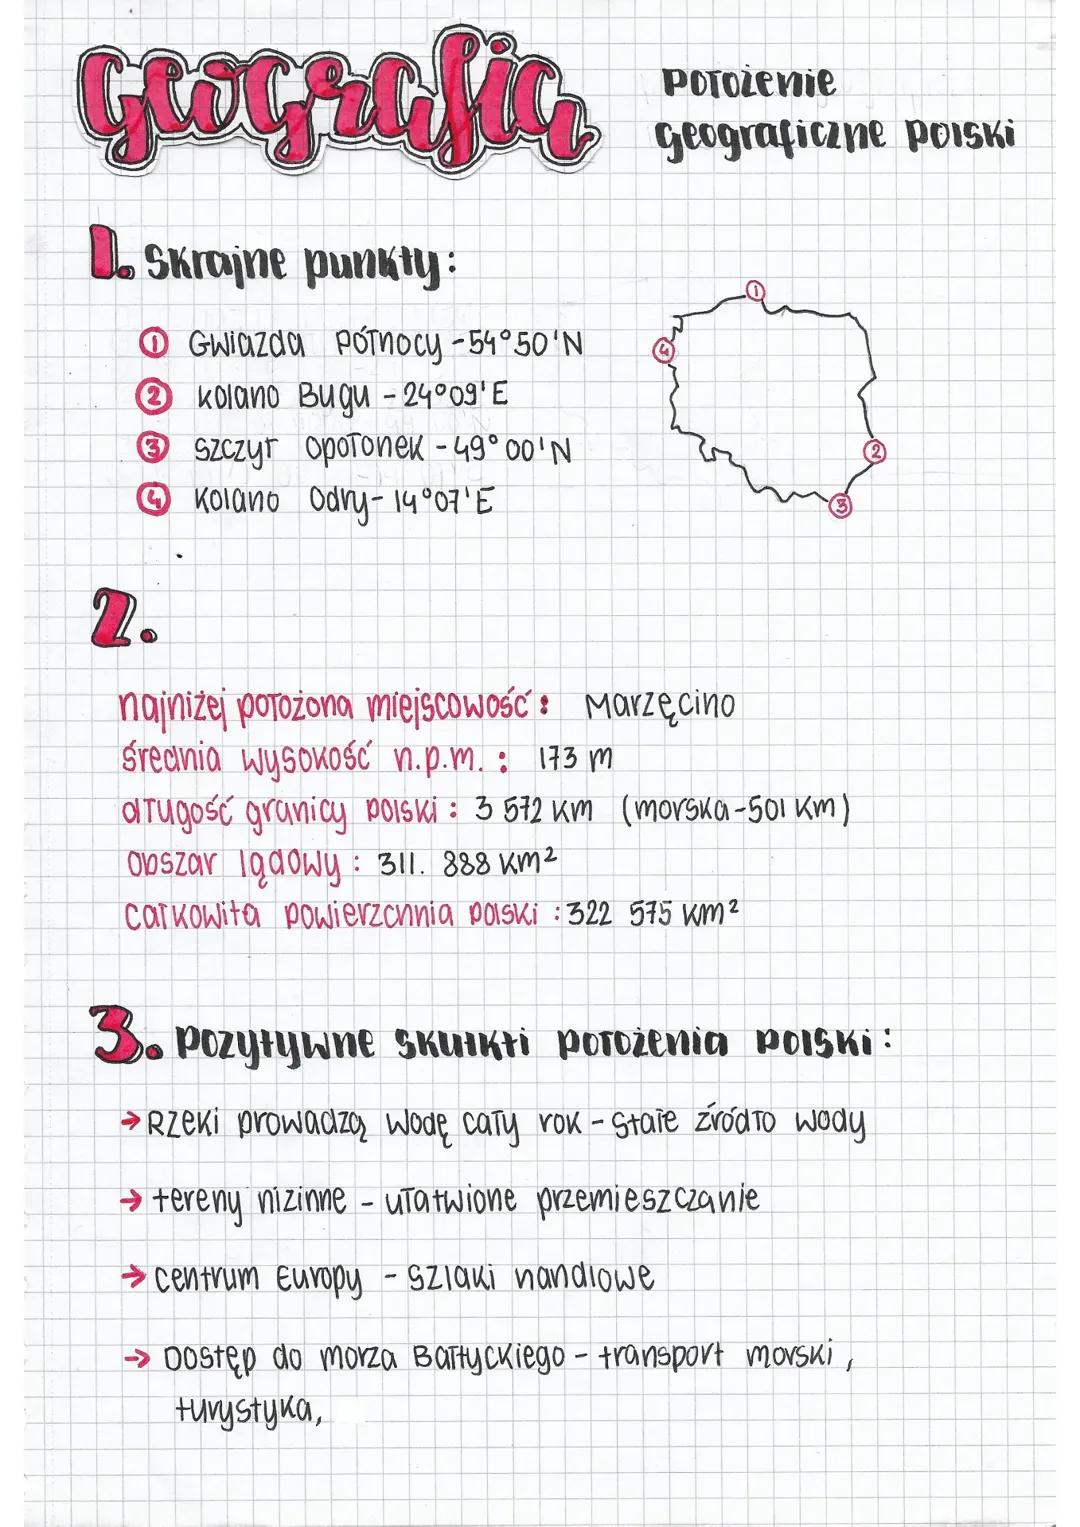 Geografia
Położenie
geograficzne polski
1. Skrajne punkty:
① Gwiazda północy - 54°50'N
② kolano Bugu - 24°09'E
③ szczyt opołonek - 49°00'N
④ Kolano Odry - 14°07'E
1
4
2
3
2.
najniżej położona miejscowość: Marzęcino
średnia wysokość n.p.m. : 173 m
długość granicy polski : 3 572 km (morska - 501 km)
obszar lądowy : 311. 888 km²
całkowita powierzchnia polski : 322 575 km²
3. pozytywne skutkti położenia polski :
→ Rzeki prowadzą wodę cały rok - stałe źródło wody
→ tereny nizinne - ułatwione przemieszczanie
→ centrum Europy - szlaki handlowe
→ Dostęp do morza Bałtyckiego - transport morski ,
turystyka,